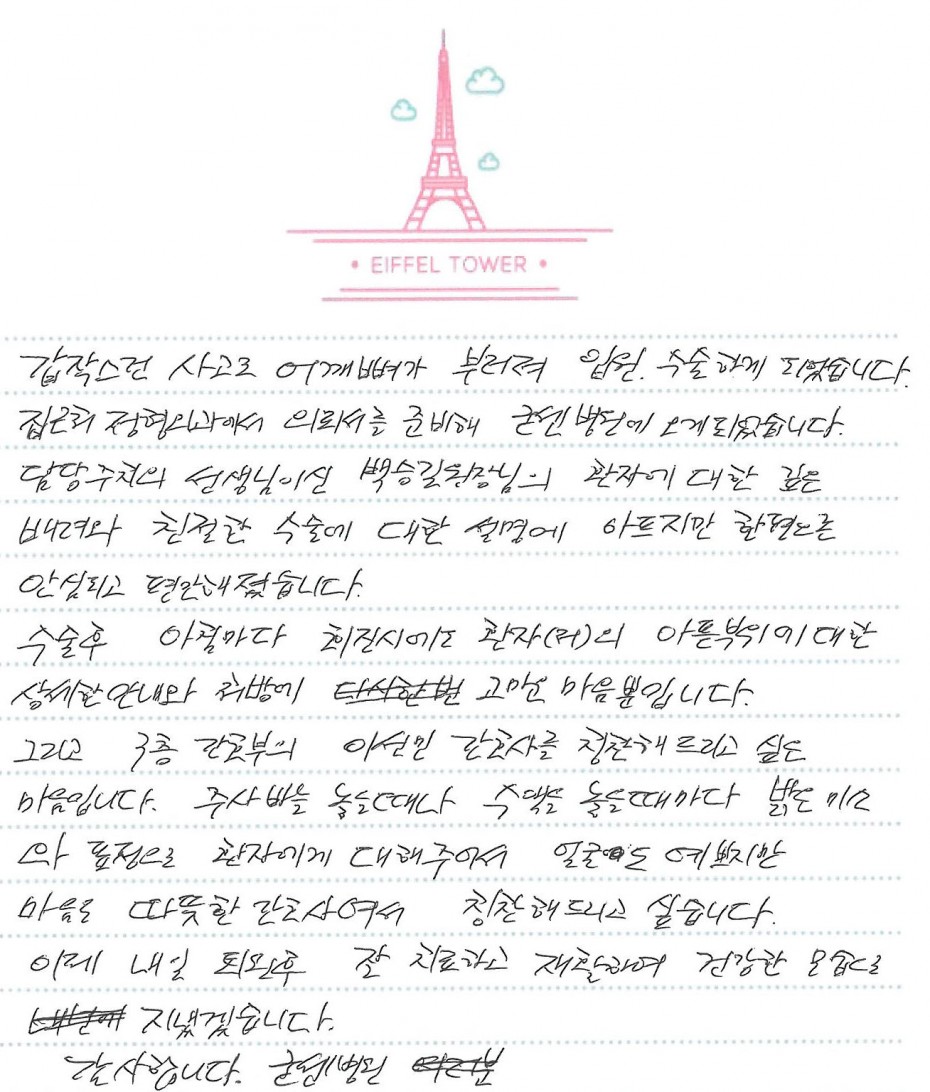 • EIFFEL TOWER •
갑작스런 사고로 어깨뼈가 부러져 입원. 수술하게 되었습니다.
집근처 정형외과에서 의뢰서를 준비해 굳센병원에 오게되었습니다.
담당주치의 선생님이신 백승길원장님의 환자에 대한 깊은
배려와 친절한 수술에 대한 설명에 아프지만 한편으론
안심되고 편안해졌습니다.
수술후 아침마다 회진시에도 환자(저)의 아픈부위에대한
상세한안내와 처방에 고마운 마음뿐입니다.
그리고 3층 간호부의 이선민 간호사를 칭찬해드리고 싶은
마음입니다. 주사바늘 놓을때나 수액을 놓을때마다 밝은 미소
의 표정으로 환자에게 대해주어서 얼굴도 예쁘지만
마음도 따뜻한 간호사여서 칭찬해드리고 싶습니다.
이제 내일 퇴원후 잘 치료하고 재활하여 건강한 모습으로
지냈겠습니다.
감사합니다. 굳센병원